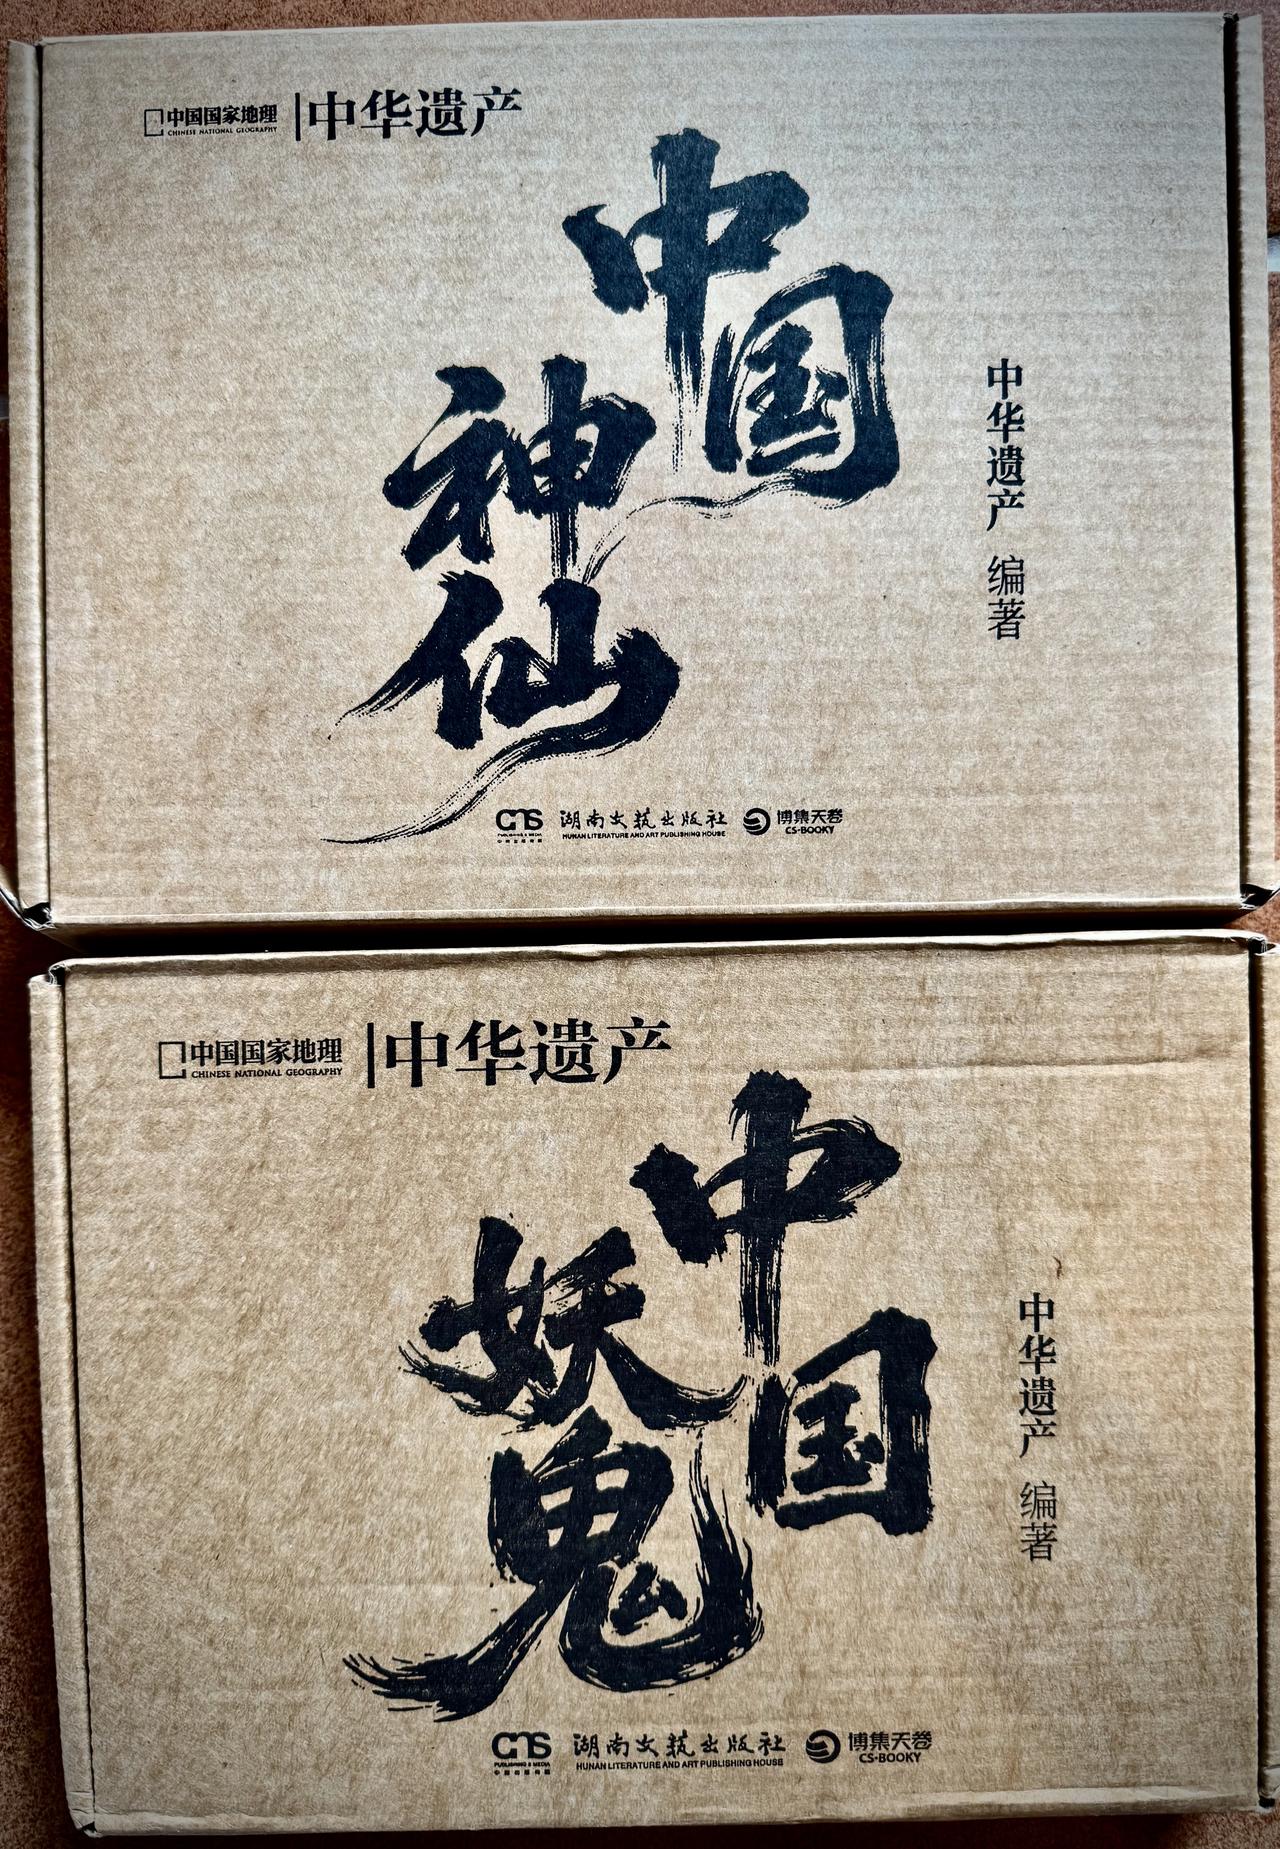 中国国家地理
CHINESE NATIONAL GEOGRAPHY
中华遗产
中国
神仙
中华遗产 编著
CNS
PUBLISHING & MEDIA
中南出版传媒
湖南文艺出版社
HUNAN LITERATURE AND ART PUBLISHING HOUSE
博集天卷
CS-BOOKY
中国国家地理
CHINESE NATIONAL GEOGRAPHY
中华遗产
中国
妖鬼
中华遗产 编著
CNS
PUBLISHING & MEDIA
中南出版传媒
湖南文艺出版社
HUNAN LITERATURE AND ART PUBLISHING HOUSE
博集天卷
CS-BOOKY